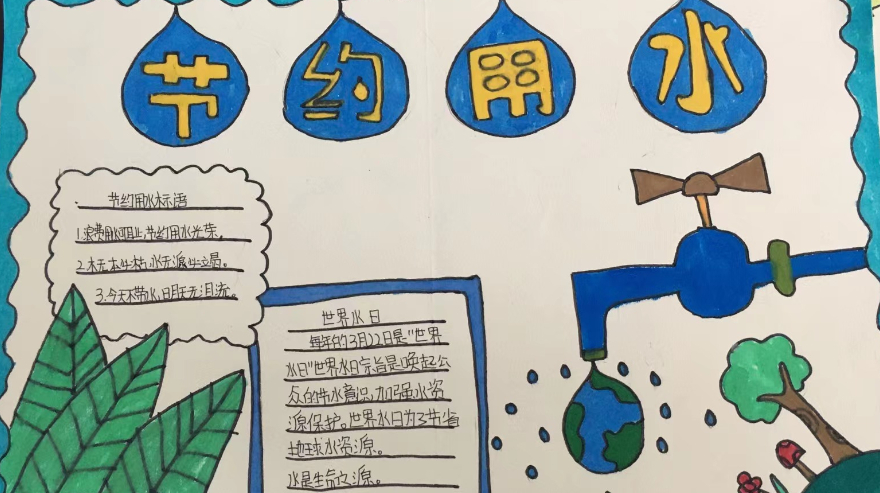 节约用水
节约用水标语
1.浪费用水可耻,节约用水光荣。
2.木无本必枯,水无源必竭。
3.今天不节水,明天无泪流。
世界水日
每年的3月22日是"世界
水日"世界水日宗旨是唤起公
众的节水意识,加强水资
源保护。世界水日为了节省
地球水资源。
水是生命之源。